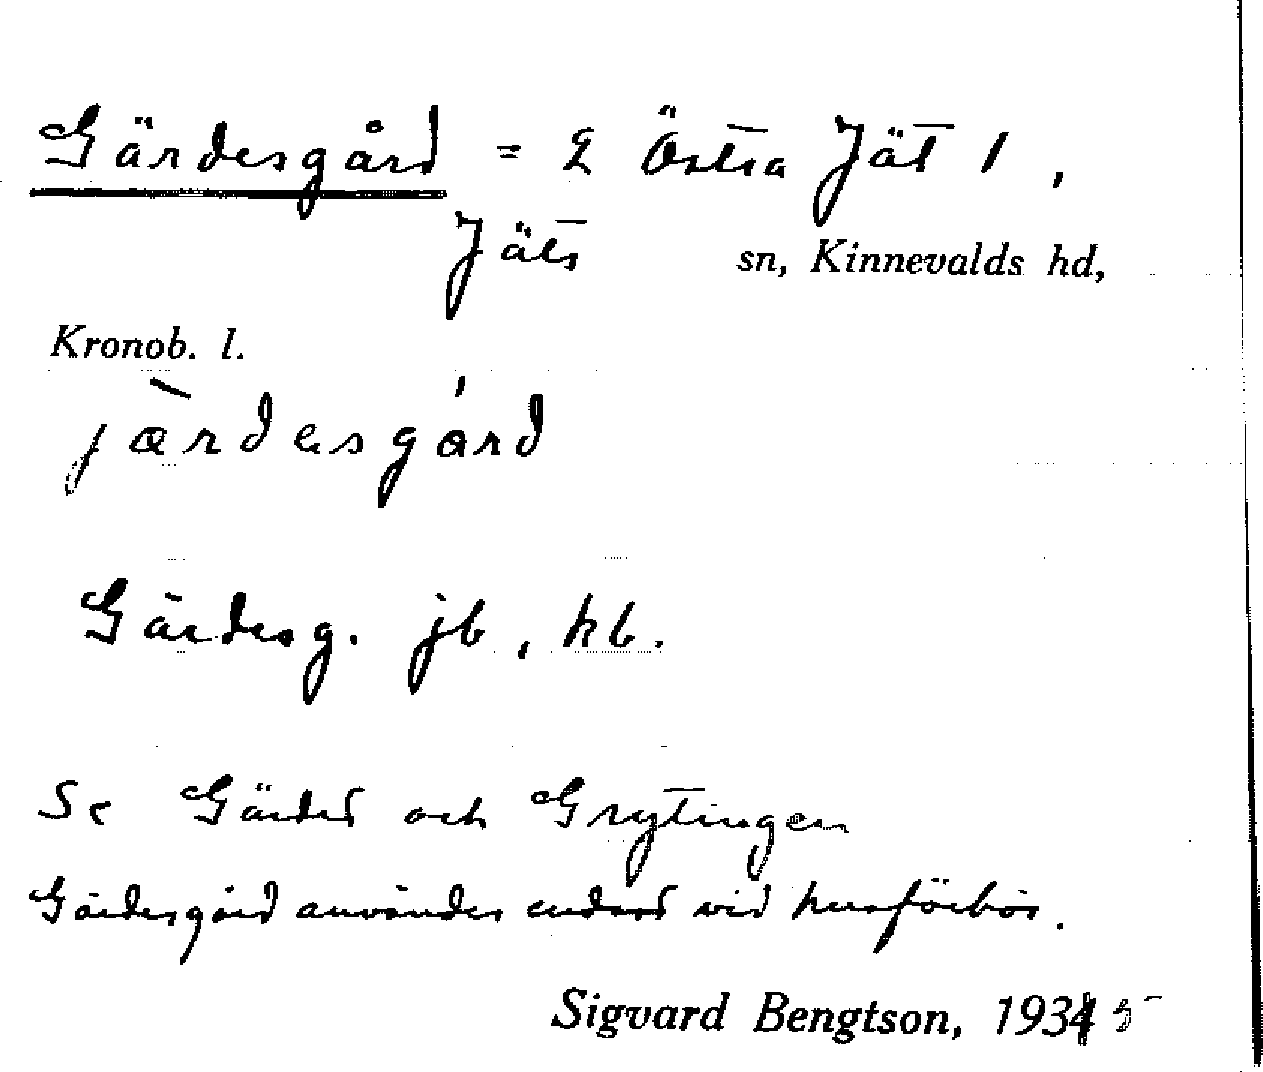 Gärdesgård = 2 Östra Jät 1,
Jäts sn, Kinnevalds hd,
Kronob. l.
jæ̀rdesgárd
Gärdesg. jb, hb.
Se Gärdet och Grytingen
Gärdesgård användes endast vid husförhör.
Sigvard Bengtson, 1935